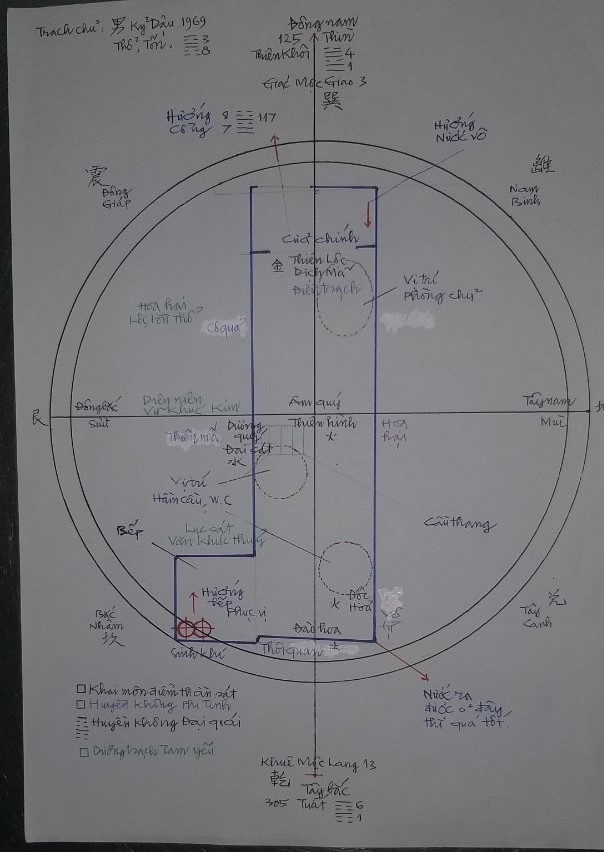 Trạch chủ: 男 Kỷ Dậu 1969
Thổ, Tốn. 3
8
Đông nam
125 Thìn
Thiên Khôi 4
1
Giác Mộc Giao 3
巽
Hướng 8 117
Cổng 7
Hướng
Nước vô
震
Đông
Giáp
離
Nam
Bính
Cửa chính
金 Thiên Lộc
Dịch Mã
Điền trạch
Vị trí
Phòng chủ
Hoạ hại
Lộc tồn Thổ
Cô quả
艮
Đông bắc
Sửu
Diên niên
Vũ Khúc Kim
Âm quý
Thiên hình
火
Hoạ
hại
Tây nam
Mùi
Thiên mã
Dương
quý
Đại sát
水
Vị trí
Hầm cầu, W.C
Cầu thang
Bếp
Lục sát
Văn Khúc thuỷ
Hướng
bếp
Phục vị
火
Độc
Hoả
Bắc
Nhâm
坎
Đào hoa
土
Sinh khí
Thôi quan
Tây
Canh
兌
Nước ra
được ở đây
thì quá tốt.
Khai môn điểm thần sát
Huyền không Phi Tinh
Huyền không Đại quái
Dương trạch Tam yếu
Khuê Mộc Lang 13
乾
Tây bắc
305 Tuất 6
1